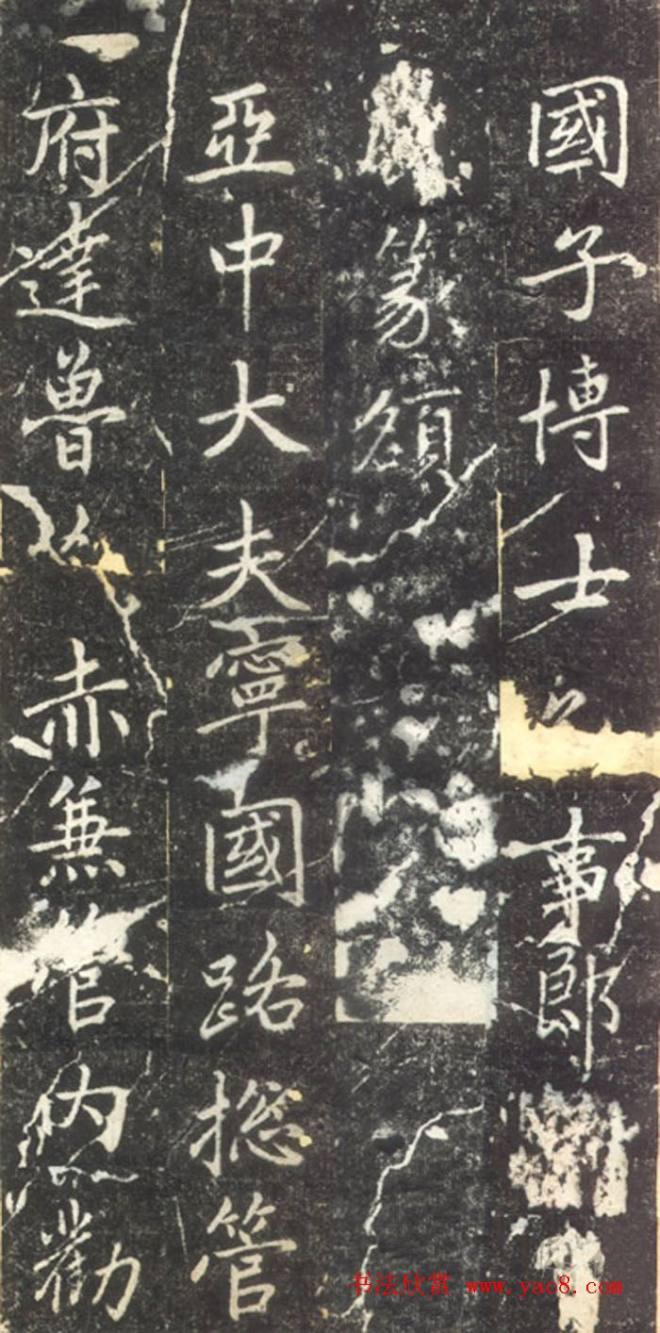 國子博士事郎
篆額
亞中大夫寧國路揔管
府達魯赤兼管內勸
书法欣赏 www.yac8.com